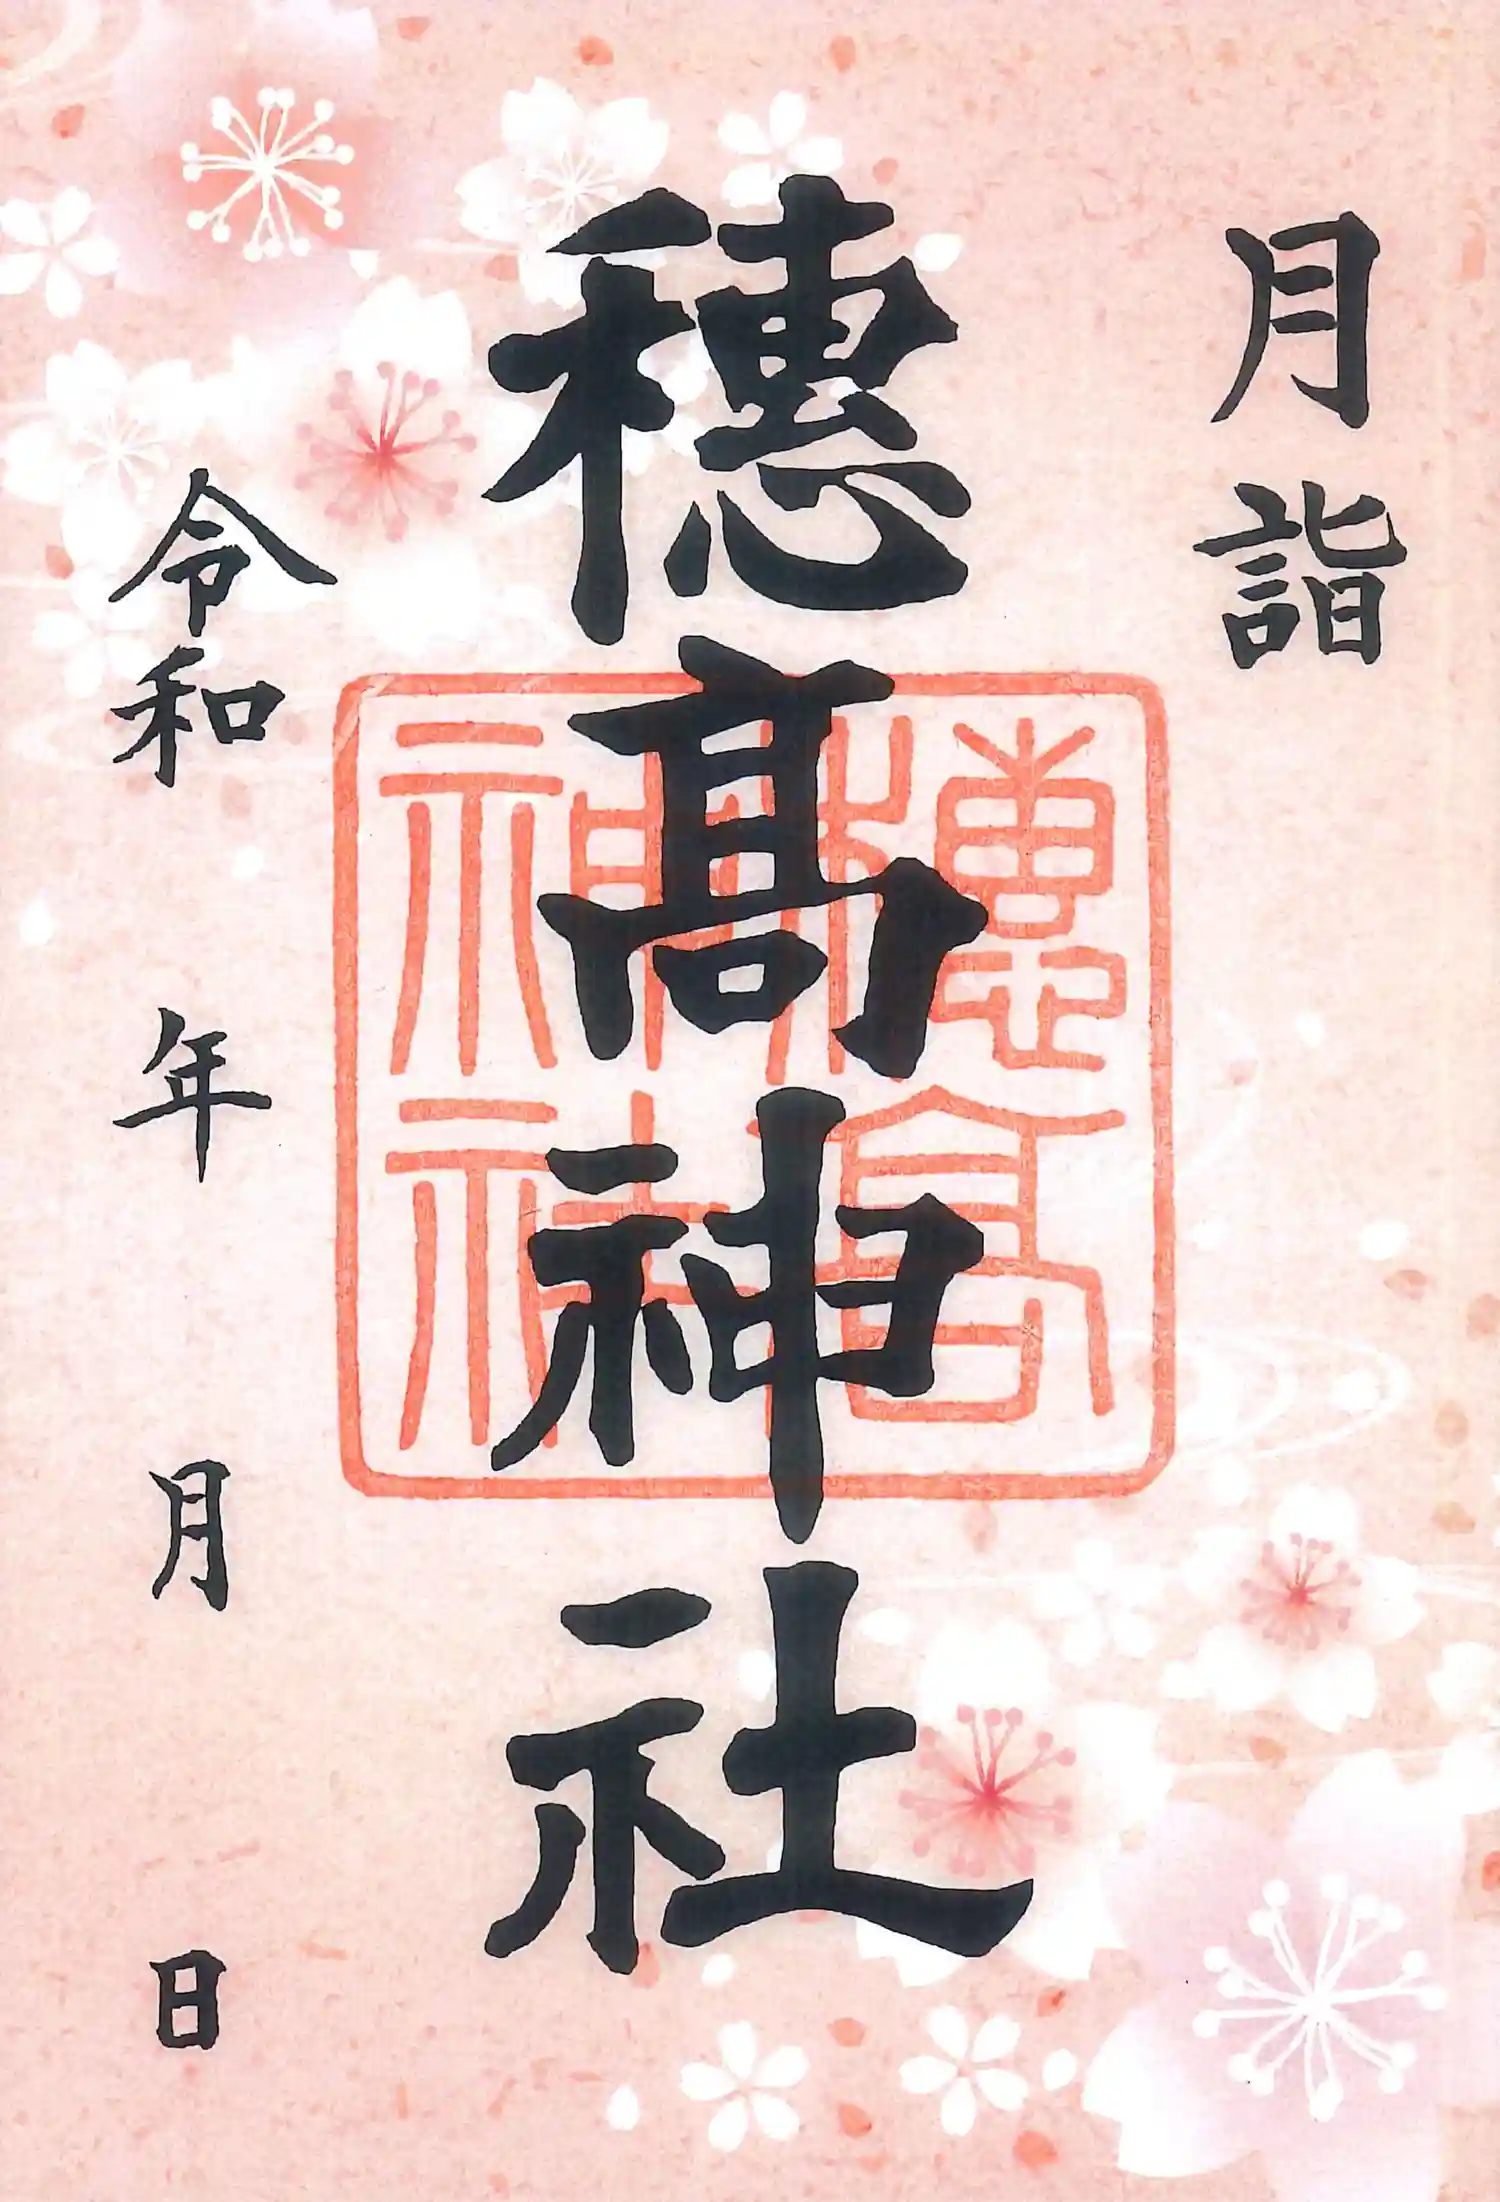 月詣
穂髙神社
穂高
神社
令和　年　月　日